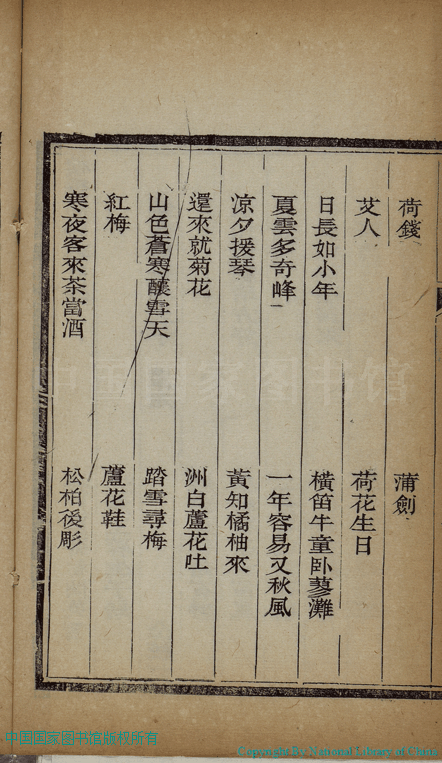 荷錢 蒲劍
艾人 荷花生日
日長如小年 橫笛牛童卧蓼灘
夏雲多奇峰 一年容易又秋風
涼夕援琴 黃知橘柚來
還來就菊花 洲白蘆花吐
山色蒼寒釀雪天 踏雪尋梅
紅梅 蘆花鞋
寒夜客來茶當酒 松柏後彫
中国国家图书馆
中国国家图书馆版权所有
Copyright By National Library of China